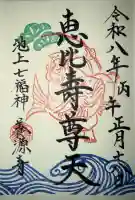 令和八年丙午正月十一日
恵比寿尊天
池上七福神 養源寺